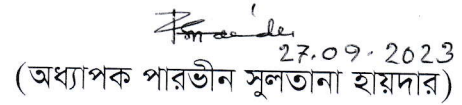 27.09.2023
(অধ্যাপক পারভীন সুলতানা হায়দার)